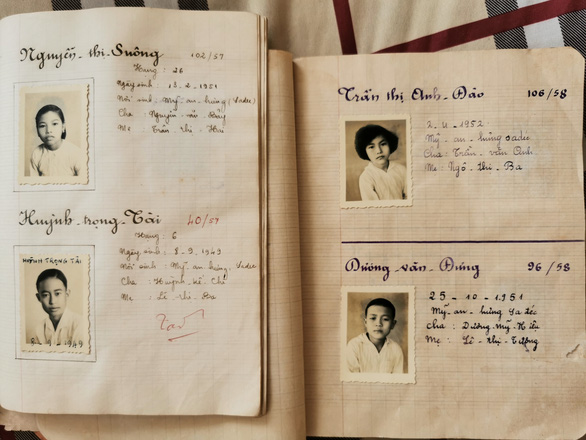 Nguyễn-thị-Suông 102/57
Hạng: 26
Ngày sinh: 13-2-1951
Nơi sinh: Mỹ-an-hưng (Sadec)
Cha: Nguyễn văn
Mẹ: Trần thị Hai
Huỳnh-trọng-Tài 40/57
Hạng: 6
Ngày sinh: 8-9-1949
Nơi sinh: Mỹ-an-hưng Sadec
Cha: Huỳnh-kế-Chí
Mẹ: Lê thị
HUỲNH TRỌNG TÀI
1949
Trần thị Anh-Đào 106/58
1952
Mỹ-an-hưng sadec
Cha: Trần-văn Anh
Mẹ: Ngô-thị-Ba
Dương-văn-Đúng 96/58
25-10-1951
Mỹ-an-hưng Sa đéc
Cha: Dương-Mỹ-Hiếu
Mẹ: Lê-thị-Tường